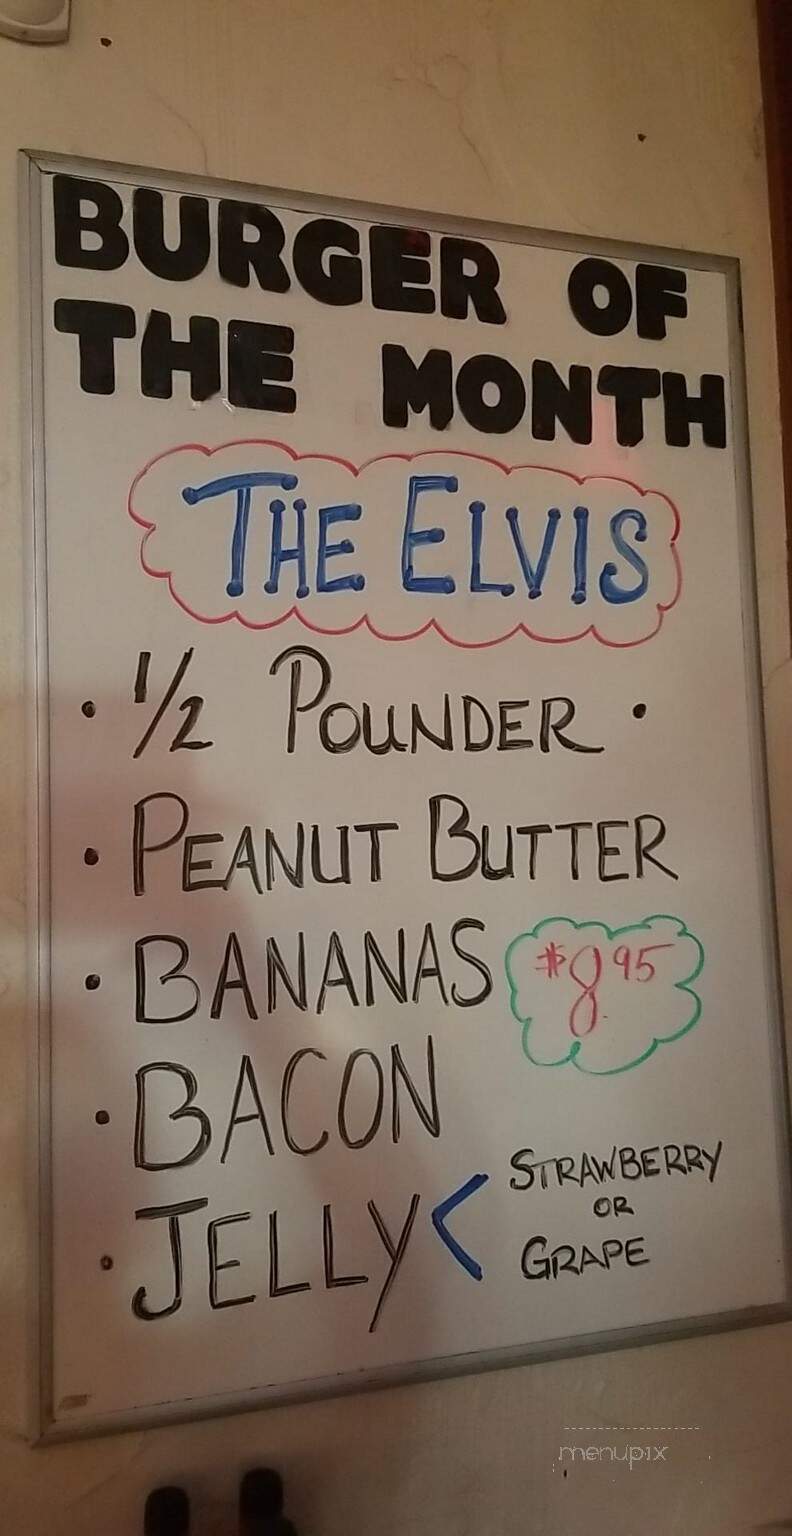 BURGER OF
THE MONTH
THE ELVIS
• 1/2 POUNDER •
• PEANUT BUTTER
• BANANAS
$8.95
• BACON
• JELLY < STRAWBERRY
OR
GRAPE
menupix